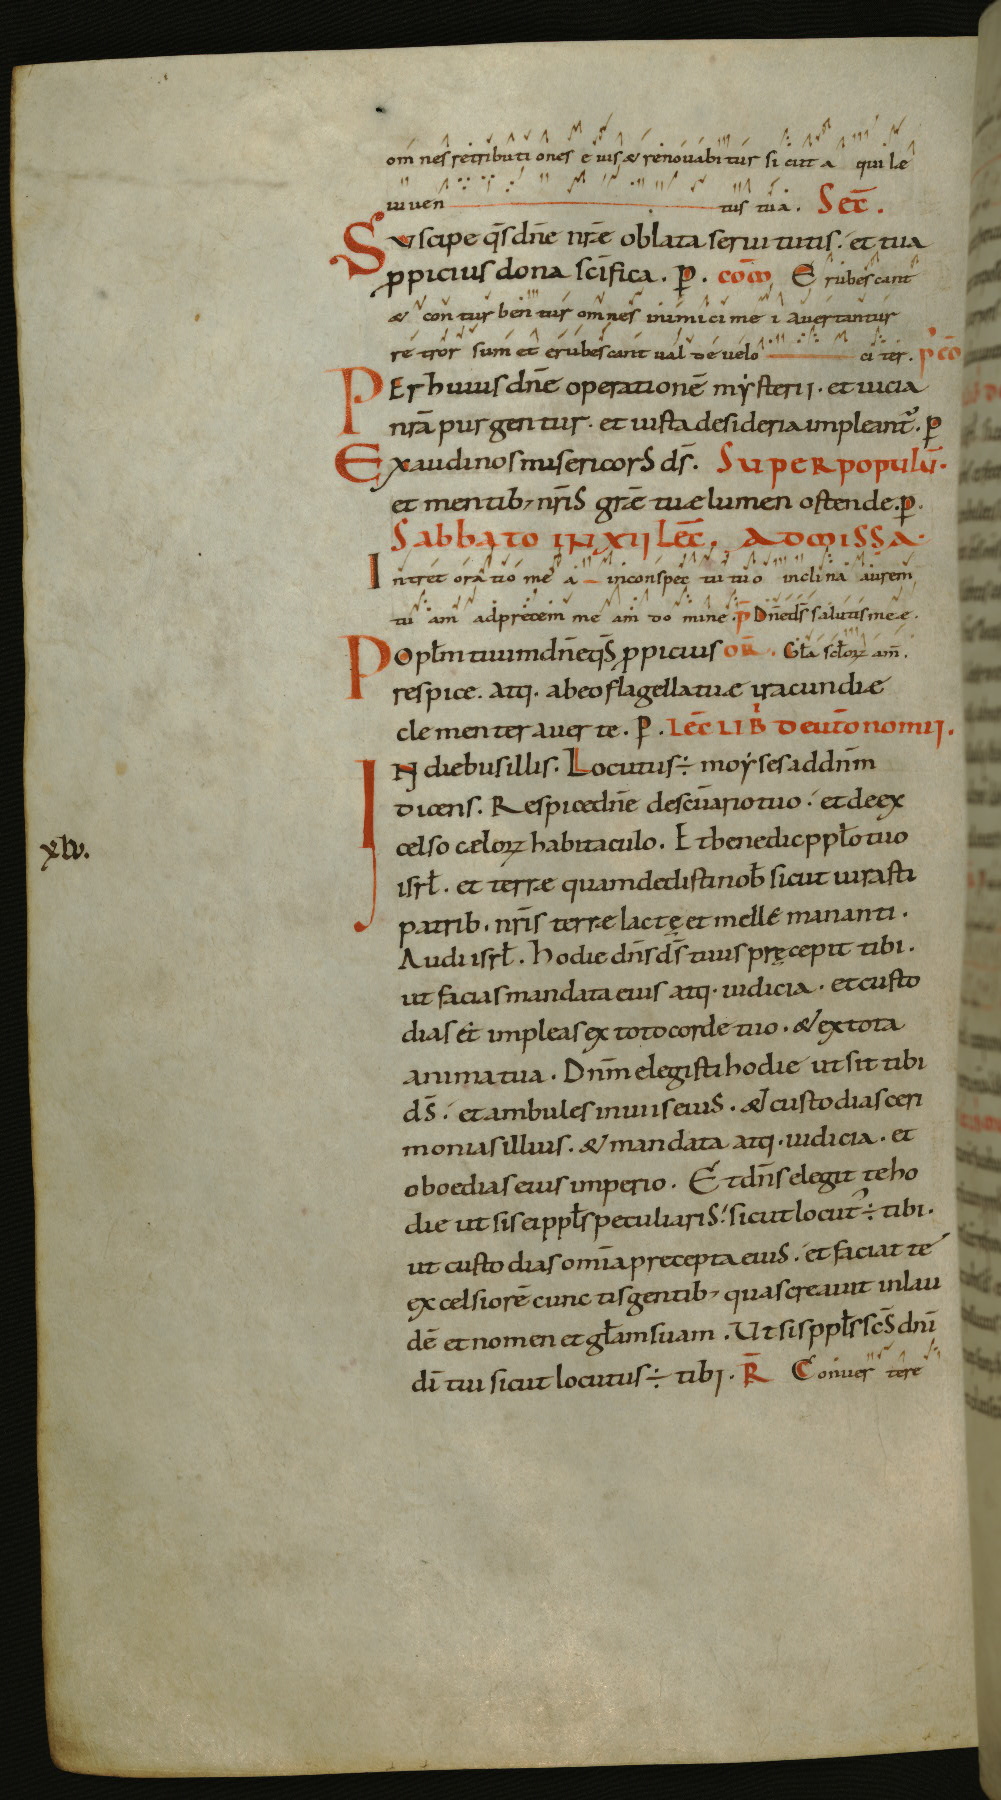 om nes retributi ones e ius & renouabitur si cut a qui læ
iuuen tus tua. Secr̄.
Suscipe qs̄ dn̄e nr̄æ oblata seruitutis. et tua
ꝓpicius dona scīfica. ꝑ. com̄ Erubescant
& con tur ben tur omnes inimici me i auertantur
re tror sum et erubescant ual de uelo ci ter. p̄ cō
Per huius dn̄e operationē mẏsterij. et uicia
nr̄a purgentur. et iusta desideria impleant᷒. ꝑ
Exaudi nos misericors ds̄. Super populū.
et mentib; nr̄is græ tuæ lumen ostende. ꝑ.
Sabbato in xij lec̄. ad missa.
Intret oratio me a in conspec tu tuo inclina aurem
tu am ad precem me am do mine. p̄ Dn̄e ds̄ salutis meę.
Popl̄m tuum dn̄e qs̄ ꝓpicius or̄. Gl̄a scl̄oꝝ am̄.
respice. atq. ab eo flagella tuæ iracundiæ
clementer auerte. ꝑ. Lec̄ lib̄ deutr̄onomij.
In diebus illis. Locutus ÷ moẏses ad dn̄m
dicens. Respice dn̄e de sc̄uario tuo. et de ex
celso cæloꝝ habitaculo. Et benedic ppl̄o tuo
isrl̄. et terræ quam dedisti nob̄ sicut iurasti
patrib. nr̄is terræ lactę et mellē mananti.
Audi isrl̄. hodie dn̄s ds̄ tuus pręcepit tibi.
ut facias mandata eius atq. iudicia. et custo
dias et impleas ex toto corde tuo. & ex tota
anima tua. Dn̄m elegisti hodie ut sit tibi
ds̄. et ambules in uiis eius. & custodias ceri
monias illius. & mandata atq. iudicia. et
oboedias eius imperio. Et dn̄s elegit te ho
die ut sis ei ppl̄s peculiaris. sicut locut᷒ ÷ tibi.
ut custodias omīa precepta eius. et faciat te
excelsiorē cunctis gentib; quas creauit in lau
dē et nomen et gl̄am suam. Ut sis ppl̄s scs̄ dn̄i
dī tui sicut locutus ÷ tibi. R̄ Conuer tere
xlv.